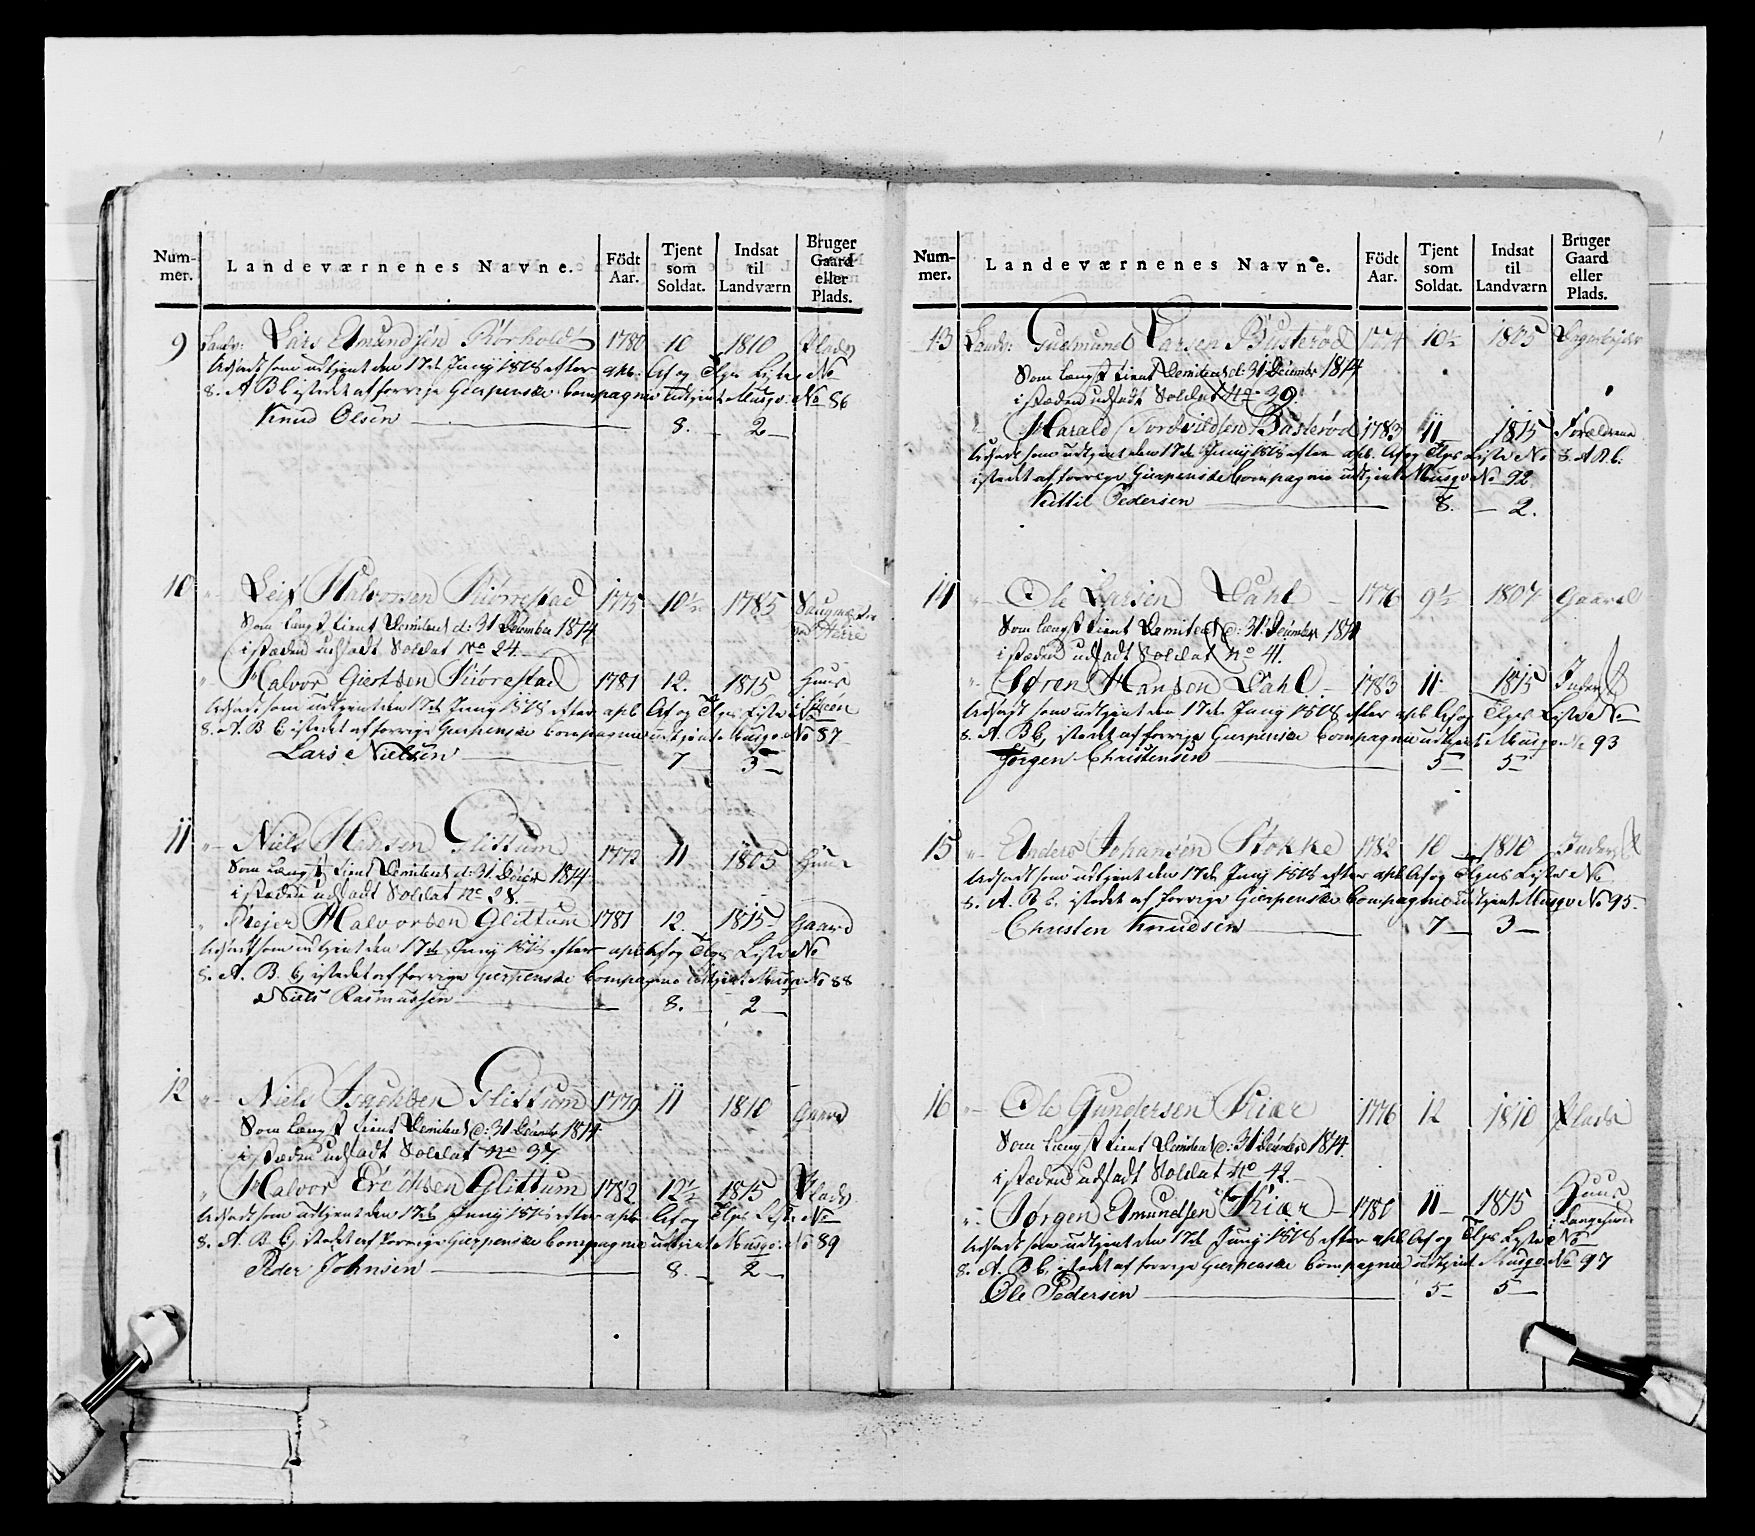 Num-
mer.
Landeværnenes Navne.
Födt
Aar.
Tjent
som
Soldat.
Indsat
til
Landværn
Bruger
Gaard
eller
Plads.
9 Landv: Lars Amundsen Rørholdt 1780 10 1810 Plads
Udsadt som udtjent den 17de Juny 1818 efter apb. Af og Tlgs Liste No
8. A. B C istedet af forrige Gierpenske Compagnie udtjent Musqv: No 86
Knud Olsen 8. 2
10 " Leif Halvorsen Kiørrestad 1775 10½ 1785
Som længst tient Demitend d: 31 December 1814
i stæden udsadt Soldat No 24.
" Halvor Giertsen Kiørestad 1781 12. 1815 Huus
Udsadt som udtjent den 17de Juny 1818 efter apb Af og Tlgs Liste No
8. A. B C istedet af forrige Gierpenske Compagnie udtjent Musqv. No 87
Lars Nielsen 7 3
11 " Niels Hansen Glittum 1772 11 1805 Huus
Som længst tient Demitend d: 31 Decbr 1814
i stæden udsadt Soldat No 28.
" Rejer Halvorsen Glittum 1781 12. 1815 Gaard
Udsadt som udtjent den 17de Juny 1818 efter apb Af og Tlgs Liste No
8. A. B. C, istedet af forrige Gierpenske Compagnie udtjent Musqv No 88
Niels Rasmussen 8. 2
12 " Niels Isachsen Glittum 1779 11 1810 Gaard
Som længst tient Demitend d: 31 Decembr 1814
i stæden udsadt Soldat No 37.
" Halvor Erichsen Glittum 1782 12½ 1815 Plads
Udsadt som udtjent den 17de Juny 1818 efter apb Af og Tlgs Liste No
8. A. B C, istedet af forrige Gierpenske Compagnie udtjent Musqv: No 89
Peder Johnsen 8. 2
Num-
mer.
Landeværnenes Navne.
Födt
Aar.
Tjent
som
Soldat.
Indsat
til
Landværn
Bruger
Gaard
eller
Plads.
13 Landv: Gudmund Larsen Busterød 1774 10½ 1805
Som længst tient Demitend d: 31 Decembr 1814
i stæden udsadt Soldat No 29.
" Harald Tordvildsen Busterød 1783 11 1815 Forældrene
Udsadt som udtjent den 17de Juny 1818 efter apb. Af og Tlgs Liste No 8. A B C.
istedet af forrige Gierpenske Compagnie udtjent Musqv No 92
Kittil Pedersen 8. 2.
14 " Ole Larsen Dahl 1776 9½ 1807 Gaard
Som længst tient Demitend d: 31 Decembr 1814
i stæden udsadt Soldat No 41.
" Søren Hansen Dahl 1783 11 1815
Udsadt som udtjent den 17de Juny 1818 efter apb Af og Tlgs Liste No
8. A. B C, istedet af forrige Gierpenske Compagnie udtjent Musqv No 93
Jørgen Christensen 5 5
15 " Anders Johansen Stokke 1782 10 1810
Udsadt som udtjent den 17de Juny 1818 efter apb Af og Tlgs Liste No
8. A. B C. istedet af forrige Gierpenske Compagnie udtjent Musqv No 95
Christen Knudsen 7 3
16 " Ole Gundersen Kiær 1776 12 1810 Plads
Som længst tient Demitend d: 31 Decembr 1814.
i stæden udsadt Soldat No 42.
" Jørgen Amundsen Kiær 1780 11 1815 Huus
Udsadt som udtjent den 17de Juny 1818 efter apb Af og Tlgs Liste No
8. A. B C, istedet af forrige Gierpenske Compagnie udtjent Musqv No 97
Ole Pedersen 5 5